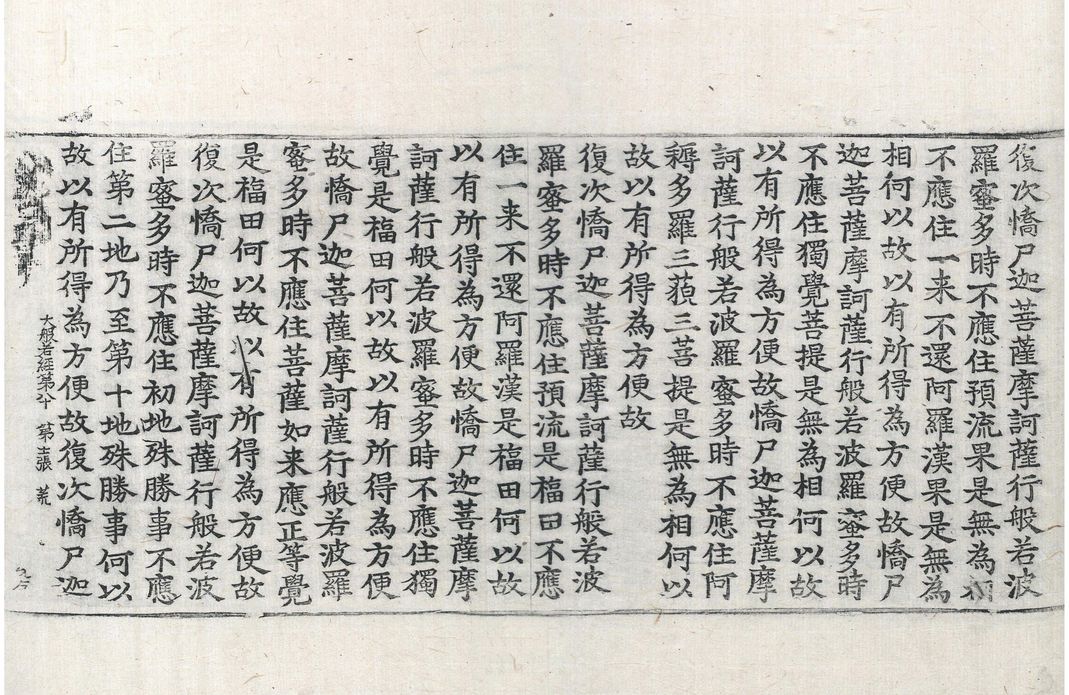 復次憍尸迦菩薩摩訶薩行般若波
羅蜜多時不應住預流果是無為相
不應住一来不還阿羅漢果是無為
相何以故以有所得為方便故憍尸
迦菩薩摩訶薩行般若波羅蜜多時
不應住獨覺菩提是無為相何以故
以有所得為方便故憍尸迦菩薩摩
訶薩行般若波羅蜜多時不應住阿
耨多羅三藐三菩提是無為相何以
故以有所得為方便故
復次憍尸迦菩薩摩訶薩行般若波
羅蜜多時不應住預流是福田不應
住一来不還阿羅漢是福田何以故
以有所得為方便故憍尸迦菩薩摩
訶薩行般若波羅蜜多時不應住獨
覺是福田何以故以有所得為方便
故憍尸迦菩薩摩訶薩行般若波羅
蜜多時不應住菩薩如来應正等覺
是福田何以故以有所得為方便故
復次憍尸迦菩薩摩訶薩行般若波
羅蜜多時不應住初地殊勝事不應
住第二地乃至第十地殊勝事何以
故以有所得為方便故復次憍尸迦
大般若經第 第 張 荒